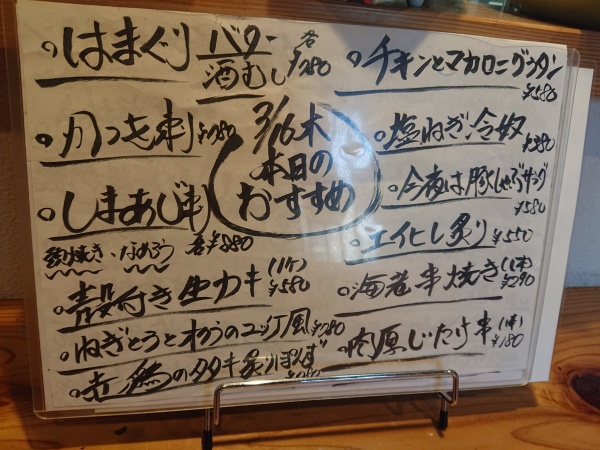 はまぐり バター 酒むし 各¥780
かつを刺 ¥780
しまあじ刺
炙り焼き・なめろう 各¥880
殻付き生カキ (1ケ) ¥580
ねぎとろとわかうのユッケ風 ¥780
鴨のタタキ炙りぽんず
3/16木
本日の
おすすめ
チキンとマカロニグラタン ¥580
塩ねぎ冷奴 ¥380
今夜は豚しゃぶサラダ ¥580
エイヒレ炙り ¥550
海老串焼き (1本) ¥290
肉厚しいたけ串 (1本) ¥180